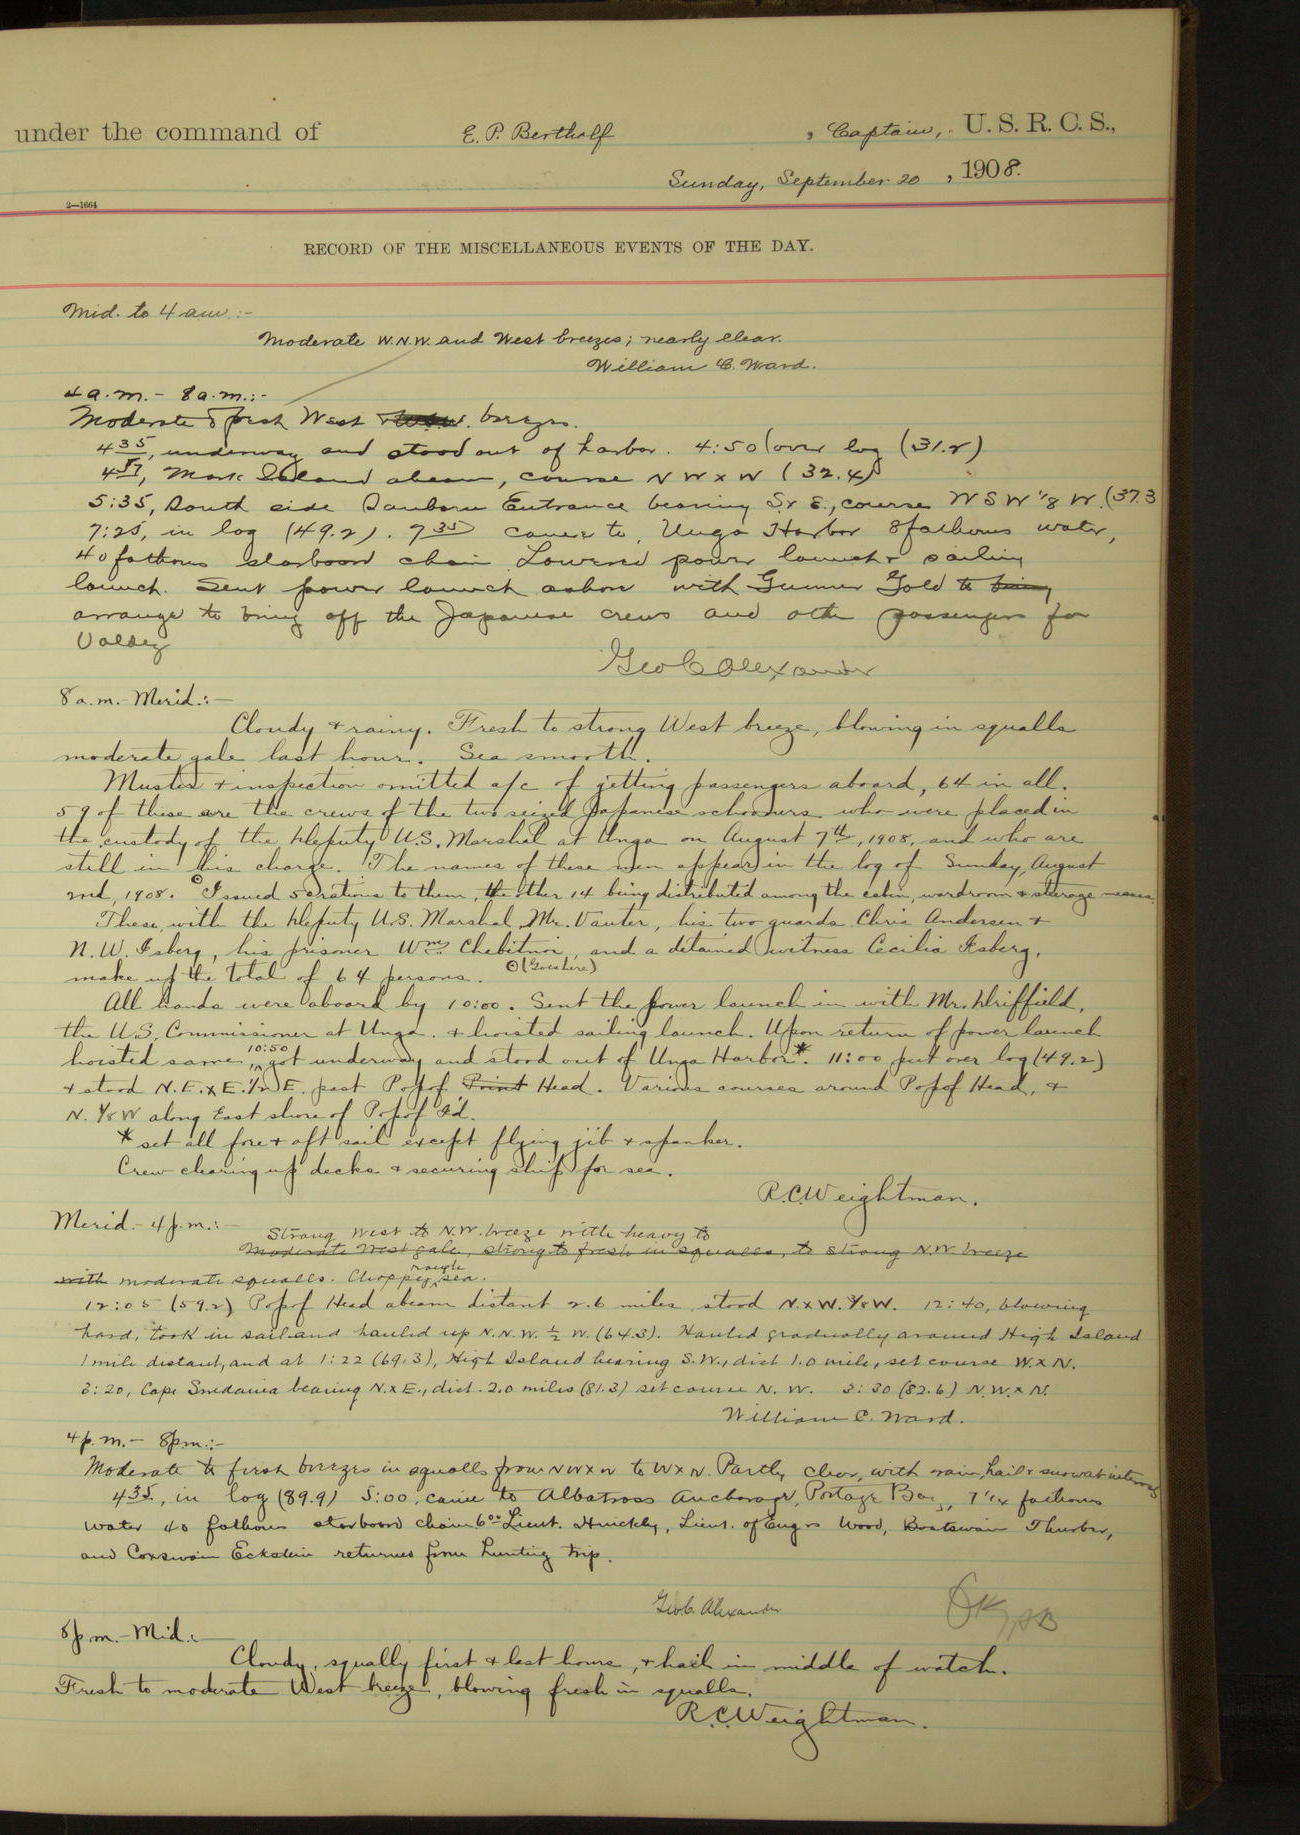 under the command of E. P. Bertholf, Captain, U. S. R. C. S.,
Sunday, September 20, 1908.
2—1664
RECORD OF THE MISCELLANEOUS EVENTS OF THE DAY.
Mid. to 4 am.:-
Moderate W.N.W. and West breezes; nearly clear.
William C. Ward.
4 a.m. - 8 a.m.:-
Moderate to fresh West breezes.
4 35, underway and stood out of harbor. 4:50 over log (31.2)
4 57, Mark Island abeam, course NWxW (32.4)
5:35, South side Sanborn Entrance bearing SxE., course WSW 1/8 W. (37.3
7:25, in log (49.2). 7 35 came to, Unga Harbor 8 fathoms water,
40 fathoms starboard chain. Lowered power launch & sailing
launch. Sent power launch ashore with Gunner Gold to bring
arrange to bring off the Japanese crews and other passengers for
Valdez
Geo C Alexander
8 a.m.- Merid.:-
Cloudy & rainy. Fresh to strong West breeze, blowing in squalls
moderate gale last hour. Sea smooth.
Muster & inspection omitted a/c of getting passengers aboard, 64 in all.
59 of these are the crews of the two seized Japanese schooners who were placed in
the custody of the Deputy U.S. Marshal at Unga on August 7th, 1908, and who are
still in his charge. The names of these men appear in the log of Sunday, August
2nd, 1908. Issued 50 rations to them, the other 14 being distributed among the cabin, wardroom & steerage messes.
These, with the Deputy U.S. Marshal, Mr. Vauter, his two guards Chris Andersen &
N. W. Isberg, his prisoner Wm. Chebitnoi, and a detained witness Cecilia Isberg,
make up the total of 64 persons.
All hands were aboard by 10:00. Sent the power launch in with Mr. Driffield,
the U.S. Commissioner at Unga. & hoisted sailing launch. Upon return of power launch
hoisted same, 10:50 got underway and stood out of Unga Harbor*. 11:00 put over log (49.2)
& stood N.E.xE. 1/2 E. past Popof Point Head. Various courses around Popof Head, &
N. 1/8 W along East shore of Popof I'd.
* set all fore & aft sail except flying jib & spanker.
Crew clearing up decks & securing ship for sea.
R.C. Weightman.
Merid.- 4 p.m.:-
Strong West to N.W. breeze with heavy to
Moderate West gale, strong to fresh in squalls, to strong N.W. breeze
with moderate squalls. Choppy rough sea.
12:05 (59.2) Popof Head abeam distant 2.6 miles, stood N.xW. 1/8 W. 12:40, blowing
hard, took in sail and hauled up N.N.W. 1/2 W. (64.3). Hauled gradually around High Island
1 mile distant, and at 1:22 (69.3), High Island bearing S.W., dist 1.0 mile, set course W.xN.
3:20, Cape Swedania bearing N.xE., dist. 2.0 miles (81.3) set course N.W. 3:30 (82.6) N.W.xN.
William C. Ward.
4 p.m. - 8 pm.:-
Moderate to fresh breezes in squalls from NWxW to WxN. Partly clear, with rain, hail & snow at intervals
4 35, in log (89.9) 5:00, came to Albatross Anchorage, Portage Bay, 7 1/4 fathoms
water 40 fathoms starboard chain. 6 00 Lieut. Hinckley, Lieut. of Engrs Wood, Boatswain Thurber,
and Coxswain Eckstein returned from hunting trip.
Geo C. Alexander
OK
8 p.m.- Mid.:-
Cloudy, squally first & last hours, & hail in middle of watch.
Fresh to moderate West breeze, blowing fresh in squalls.
R.C. Weightman.